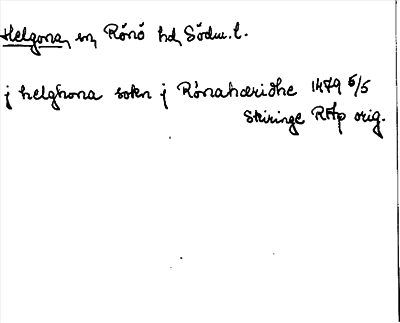 Helgona, sn, Rönö hd, Södm.l.
j helghona sokn j Rönahæridhe 1479 5/5
Skiringe RAp orig.